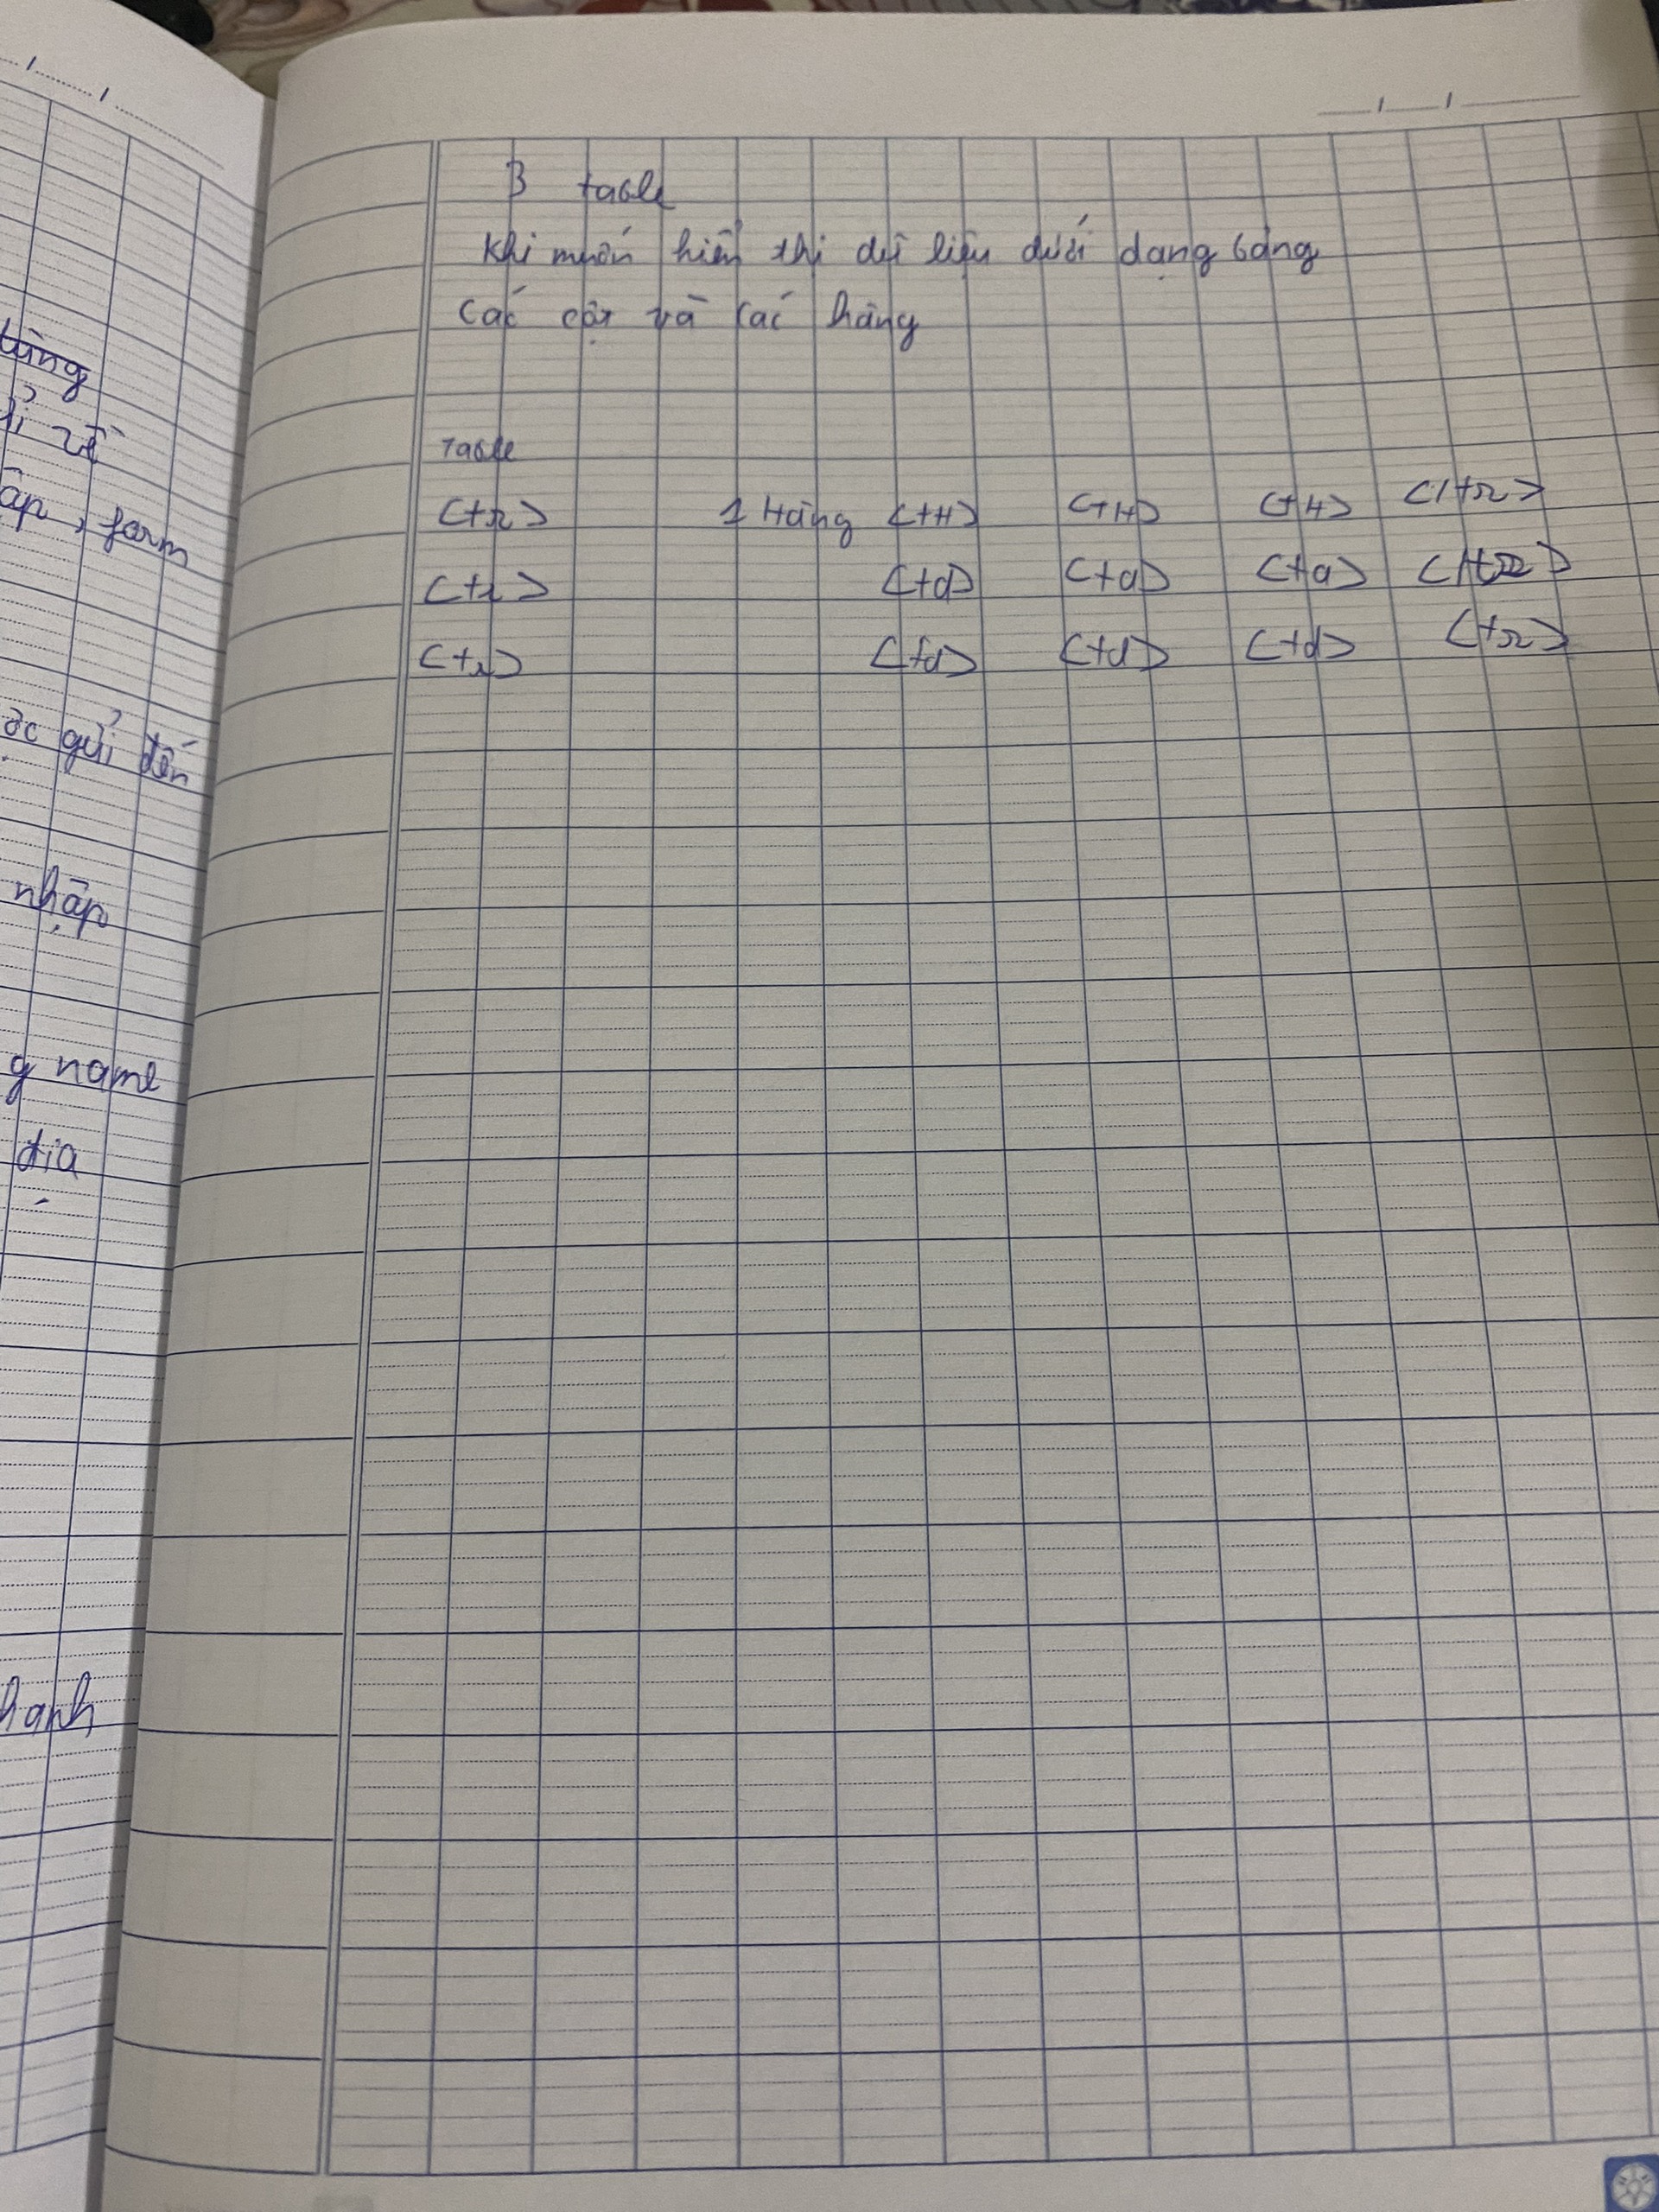 từng
ỉ về
ập, form
ặc gửi đến
nhập
g name
địa
hanh
3 table
Khi muốn hiển thị dữ liệu dưới dạng bảng
các cột và các hàng
Table
<tr> 1 Hàng <tH> <tH> <tH> </tr>
<tr> <td> <td> <td> </tr>
<tr> <td> <td> <td> <tr>